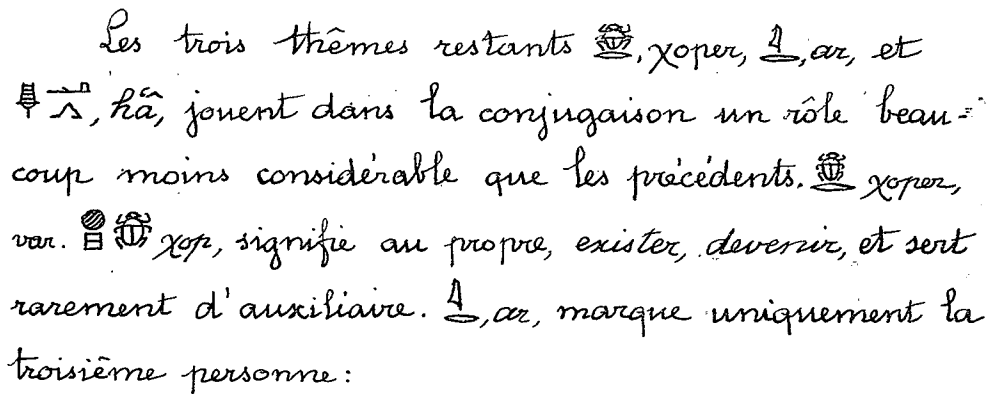 Les trois thêmes restants 𓆣𓂋, χoper, 𓇋𓂋, ar, et
𓊢𓂝𓂻, hâ, jouent dans la conjugaison un rôle beau-
coup moins considérable que les précédents. 𓆣𓂋 χoper,
var. 𓐍𓊪𓆣 χop, signifie au propre, exister, devenir, et sert
rarement d'auxiliaire. 𓇋𓂋, ar, marque uniquement la
troisième personne: